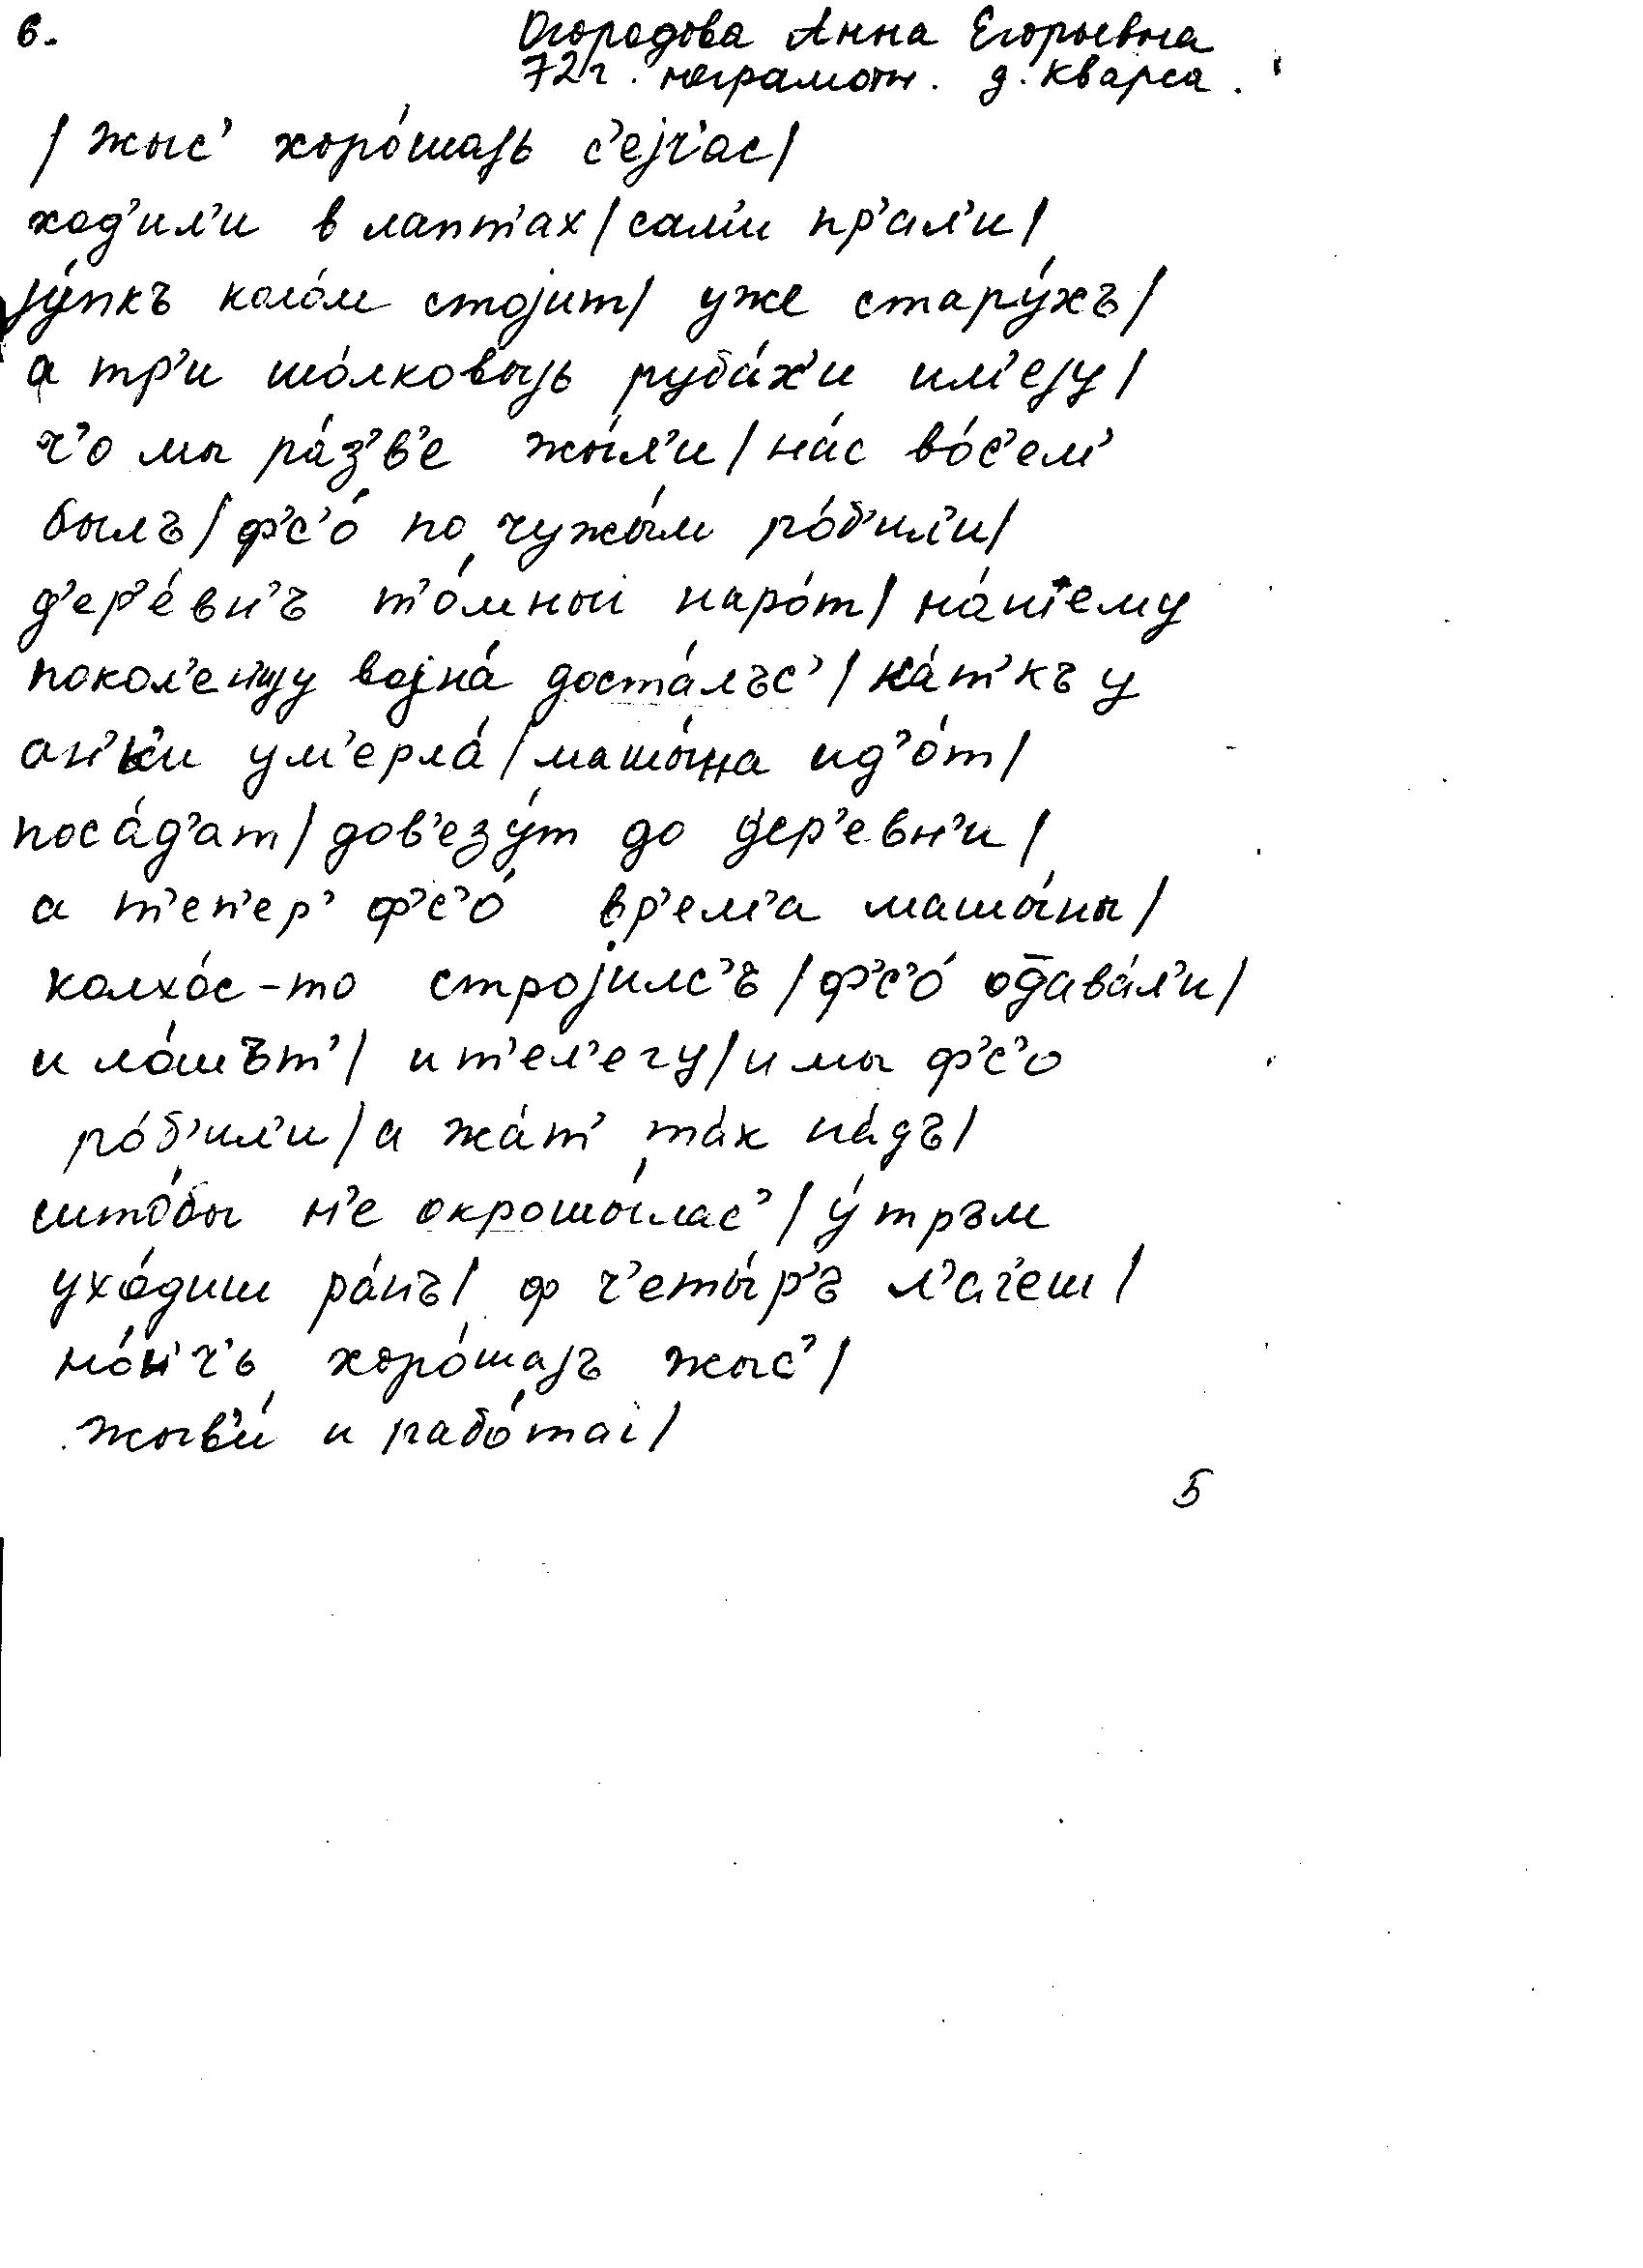 6.
Огородова Анна Егорьевна
72 г. неграмотн. д. Кварса.
/ жыс’ хоро́шаjь с’еjч’ас/
ход’ил’и в лапт’ах/ сам’и пр’ал’и/
jу́пкъ коло́м стоjит/ уже стару́хъ/
а тр’и шо́лковыjь руба́х’и им’еjу/
ч’о мы ра́з’в’е жы́л’и/ на́с во́с’ем’
былъ/ ф’с’о́ по чужы́м ро́б’ил’и/
д’ер’е́вн’ъ т’о́мныi наро́т/ на́шему
покол’ен’иjу воjна́ доста́лъс’/ ка́т’къ у
ан’к’и ум’ерла́/ машы́на ид’о́т/
поса́д’ат/ дов’езу́т до дер’евн’и/
а т’еп’ер’ ф’с’о́ вр’ем’а машы́ны/
колхо́с-то строjилс’ъ/ ф’с’о́ одава́л’и/
и ло́шът’/ и т’ел’егу/ и мы ф’с’о
ро́б’ил’и/ а жа́т’ та́к на́дъ/
што́бы н’е окрошы́лас’/ у́тръм
ухо́диш ра́нъ/ ф ч’еты́р’ъ л’аг’еш/
но́н’ч’ь хоро́шаjъ жыс’/
жыв’и́ и рабо́таi/
5